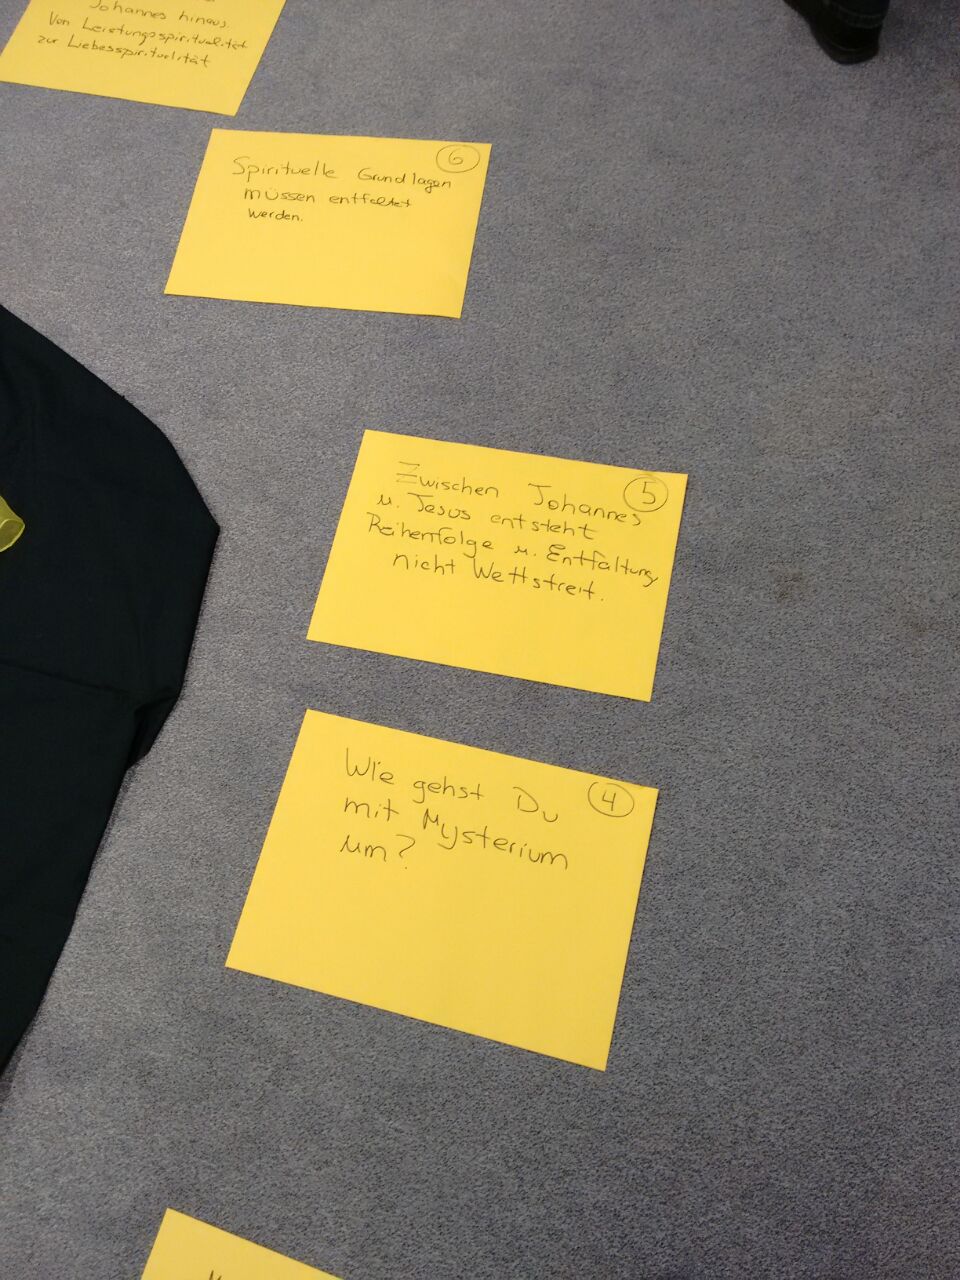 Johannes hinaus.
Von Leistungsspiritualität
zur Liebesspiritualität
6
Spirituelle Grundlagen
müssen entfaltet
werden.
5
Zwischen Johannes
u. Jesus entsteht
Reihenfolge u. Entfaltung,
nicht Wettstreit.
4
Wie gehst Du
mit Mysterium
um?